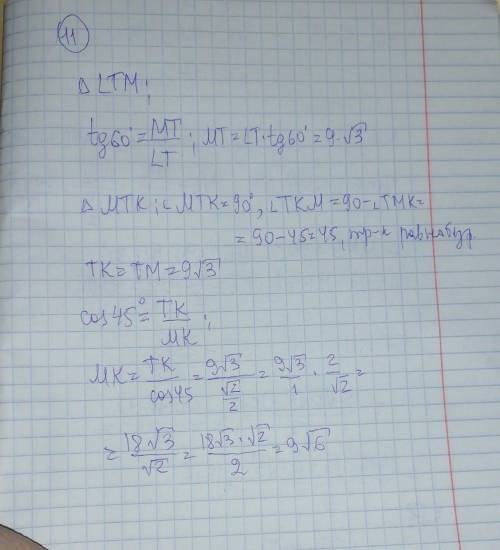 11
Δ LTM;
tg60° = MT/LT; MT = LT·tg60° = 9·√3
Δ MTK; ∠MTK = 90°, ∠TKM = 90-∠TMK =
= 90-45=45, тр-к равнобедр.
TK = TM = 9√3
cos45° = TK/MK;
MK = TK/cos45 = 9√3/(√2/2) = 9√3/1 · 2/√2 =
= 18√3/√2 = 18√3·√2/2 = 9√6